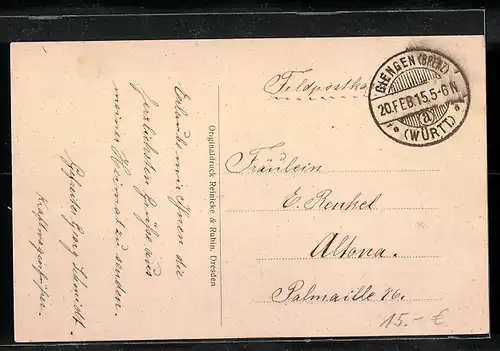 Feldpostka
GIENGEN (BRENZ)
20.FEB.15.5-6N
* a *
(WÜRTT)
Fräulein
E. Renkel
Altona.
Palmaille 76.
Originaldruck Reinicke & Rubin, Dresden
Erlaube mir Ihnen die
herzlichsten Grüße aus
meiner Heimat zu senden.
Georg Schmidt.
15.- €